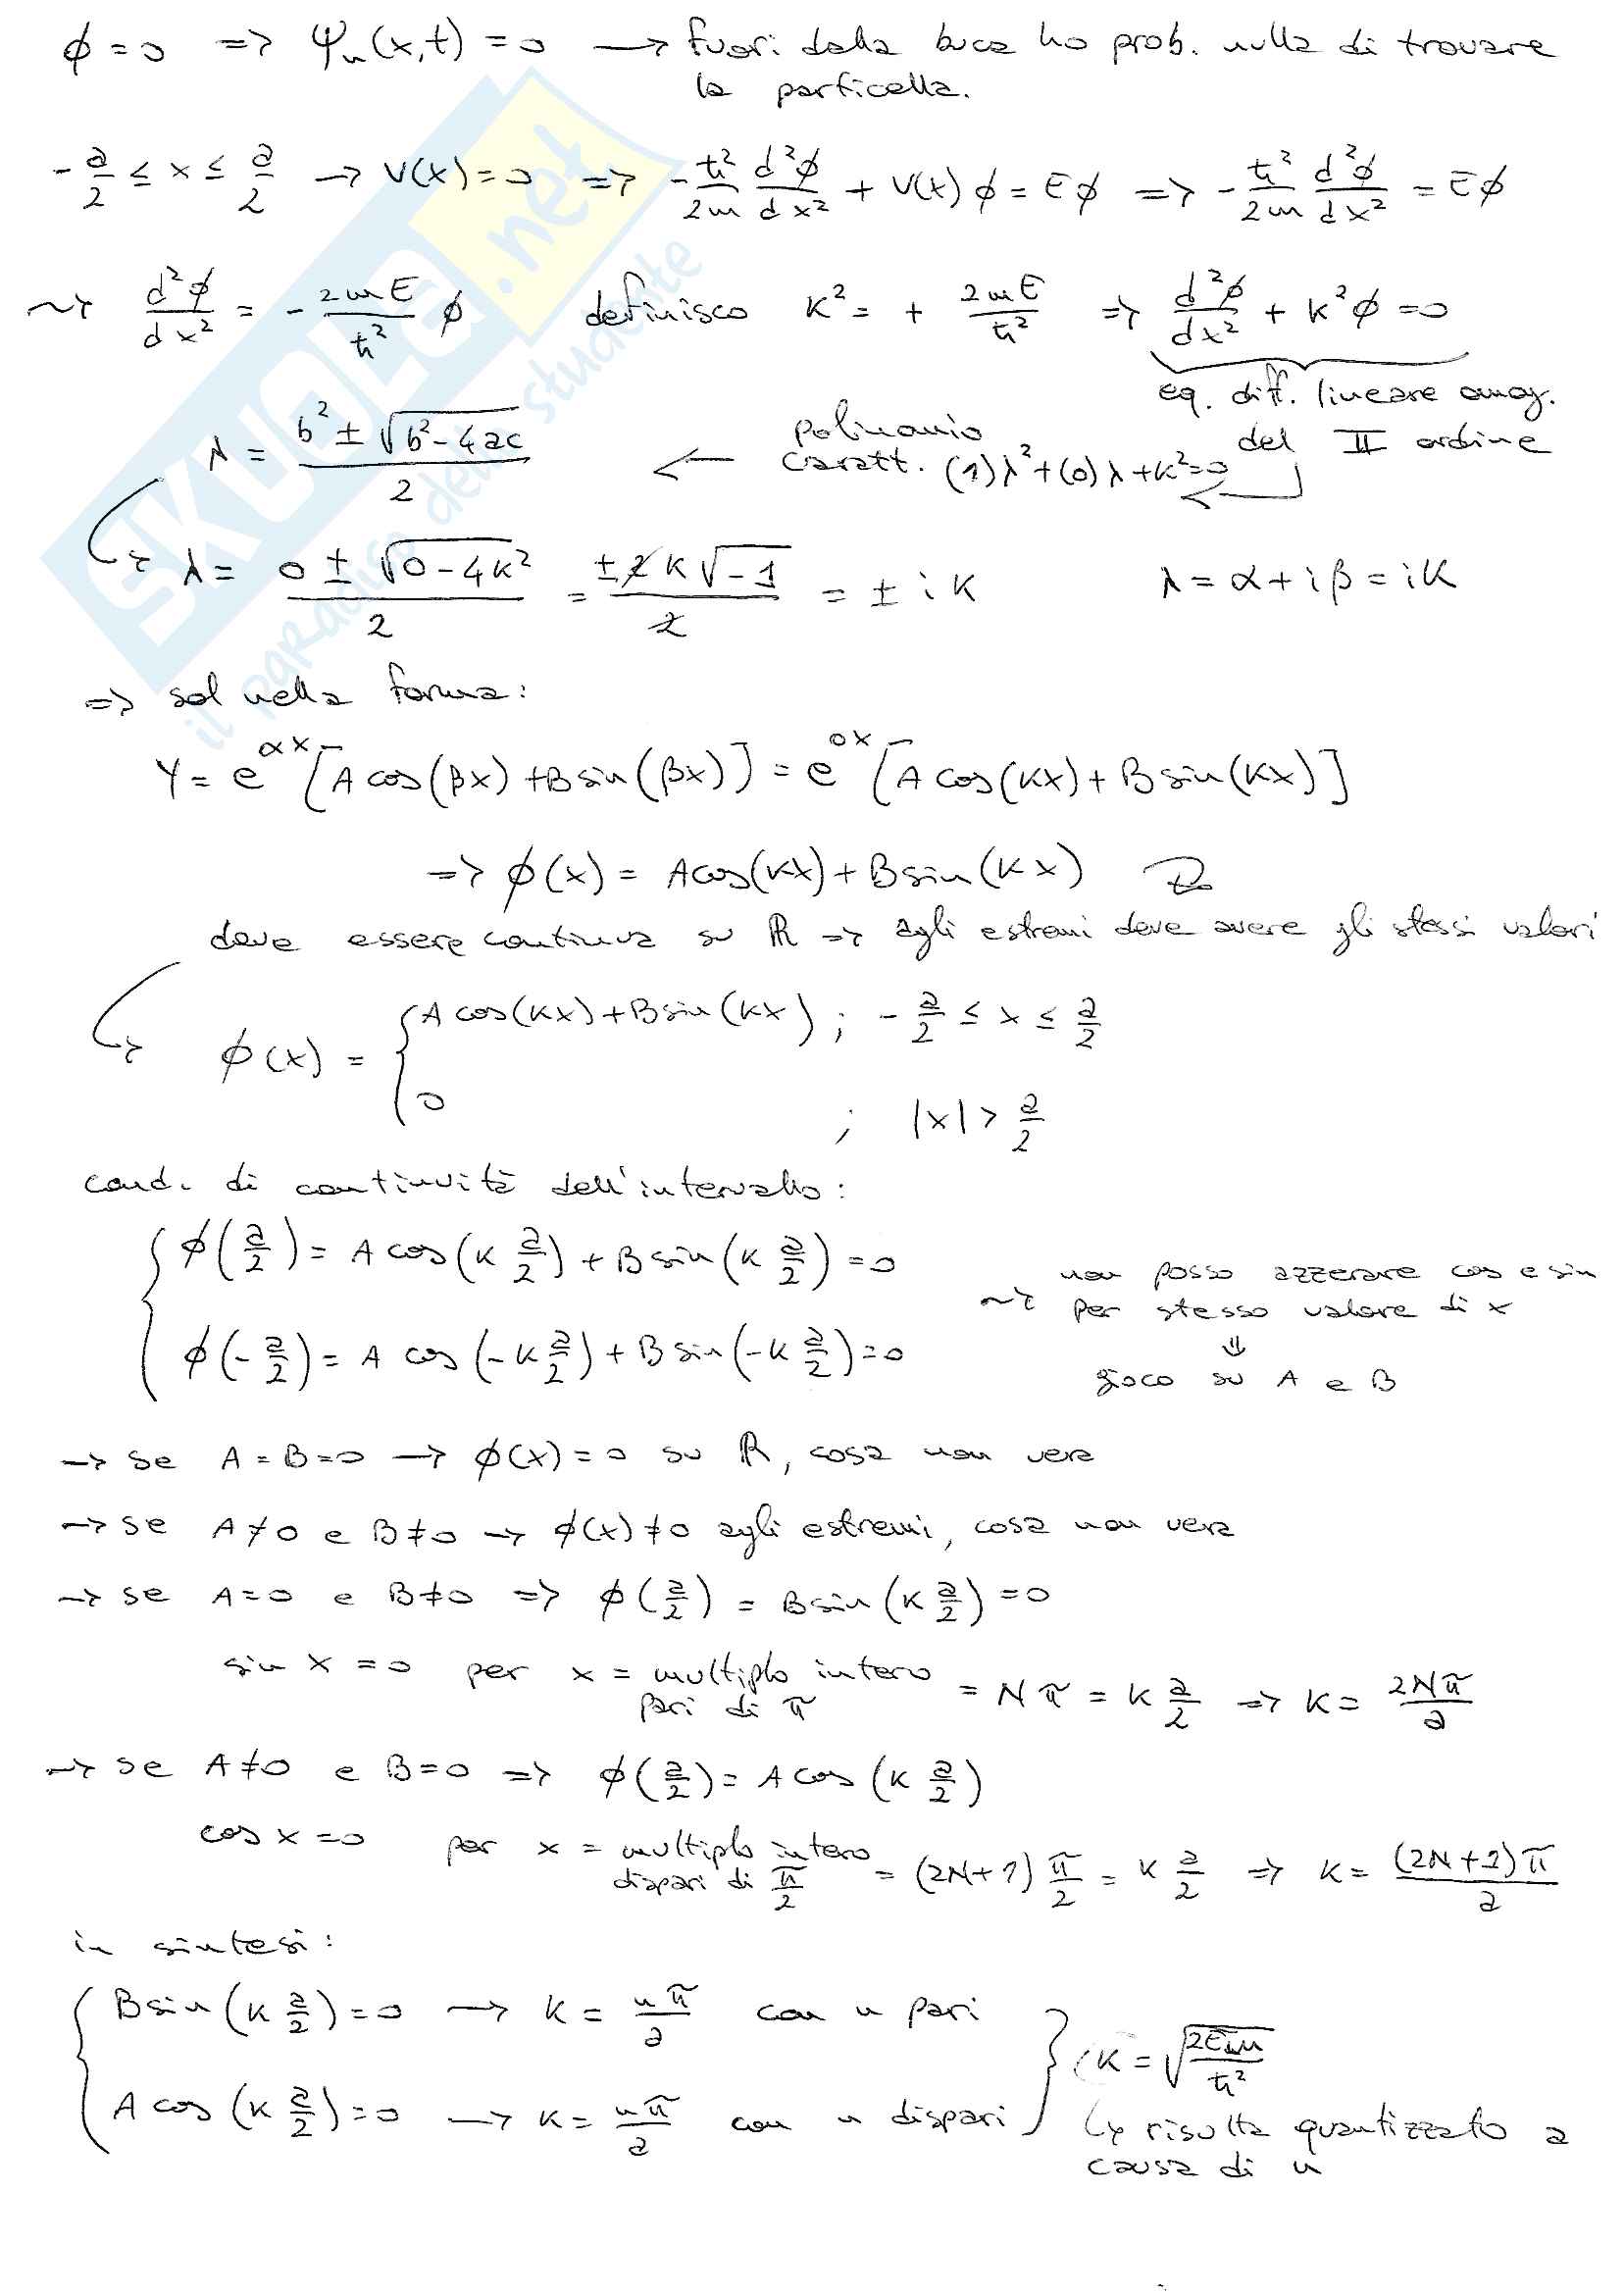 ϕ = 0 => ψₙ(x,t) = 0 → fuori dalla buca ho prob. nulla di trovare
la particella.
-a/2 ≤ x ≤ a/2 → V(x) = 0 => -ħ²/2m d²ϕ/dx² + V(x)ϕ = Eϕ => -ħ²/2m d²ϕ/dx² = Eϕ
~> d²ϕ/dx² = -2mE/ħ² ϕ definisco K² = + 2mE/ħ² => d²ϕ/dx² + K²ϕ = 0
eq. diff. lineare omog.
del II ordine
λ = (b² ± √(b²-4ac))/2 ← polinomio caratt. (1)λ² + (0)λ + K² = 0
λ = (0 ± √(0-4K²))/2 = (±2K√-1)/2 = ± iK λ = α + iβ = iK
=> sol nella forma:
Y = e^αx [A cos(βx) + B sin(βx)] = e^0x [A cos(Kx) + B sin(Kx)]
=> ϕ(x) = A cos(Kx) + B sin(Kx)
deve essere continua su ℝ => agli estremi deve avere gli stessi valori
ϕ(x) = { A cos(Kx) + B sin(Kx) ; -a/2 ≤ x ≤ a/2
0 ; |x| > a/2
cond. di continuità dell'intervallo:
ϕ(a/2) = A cos(K a/2) + B sin(K a/2) = 0
ϕ(-a/2) = A cos(-K a/2) + B sin(-K a/2) = 0
~> non posso azzerare cos e sin
per stesso valore di x
⇓
gioco su A e B
→ se A = B = 0 → ϕ(x) = 0 su ℝ, cosa non vera
→ se A ≠ 0 e B ≠ 0 → ϕ(x) ≠ 0 agli estremi, cosa non vera
→ se A = 0 e B ≠ 0 => ϕ(a/2) = B sin(K a/2) = 0
sin x = 0 per x = multiplo intero pari di π = Nπ = K a/2 => K = 2Nπ/a
→ se A ≠ 0 e B = 0 => ϕ(a/2) = A cos(K a/2)
cos x = 0 per x = multiplo intero dispari di π/2 = (2N+1) π/2 = K a/2 => K = (2N+1)π/a
in sintesi:
B sin(K a/2) = 0 → K = nπ/a con n pari
A cos(K a/2) = 0 → K = nπ/a con n dispari
K = √(2Em/ħ²)
↳ risulta quantizzato a
causa di n
SKUOLA.net
il paradiso dello studente